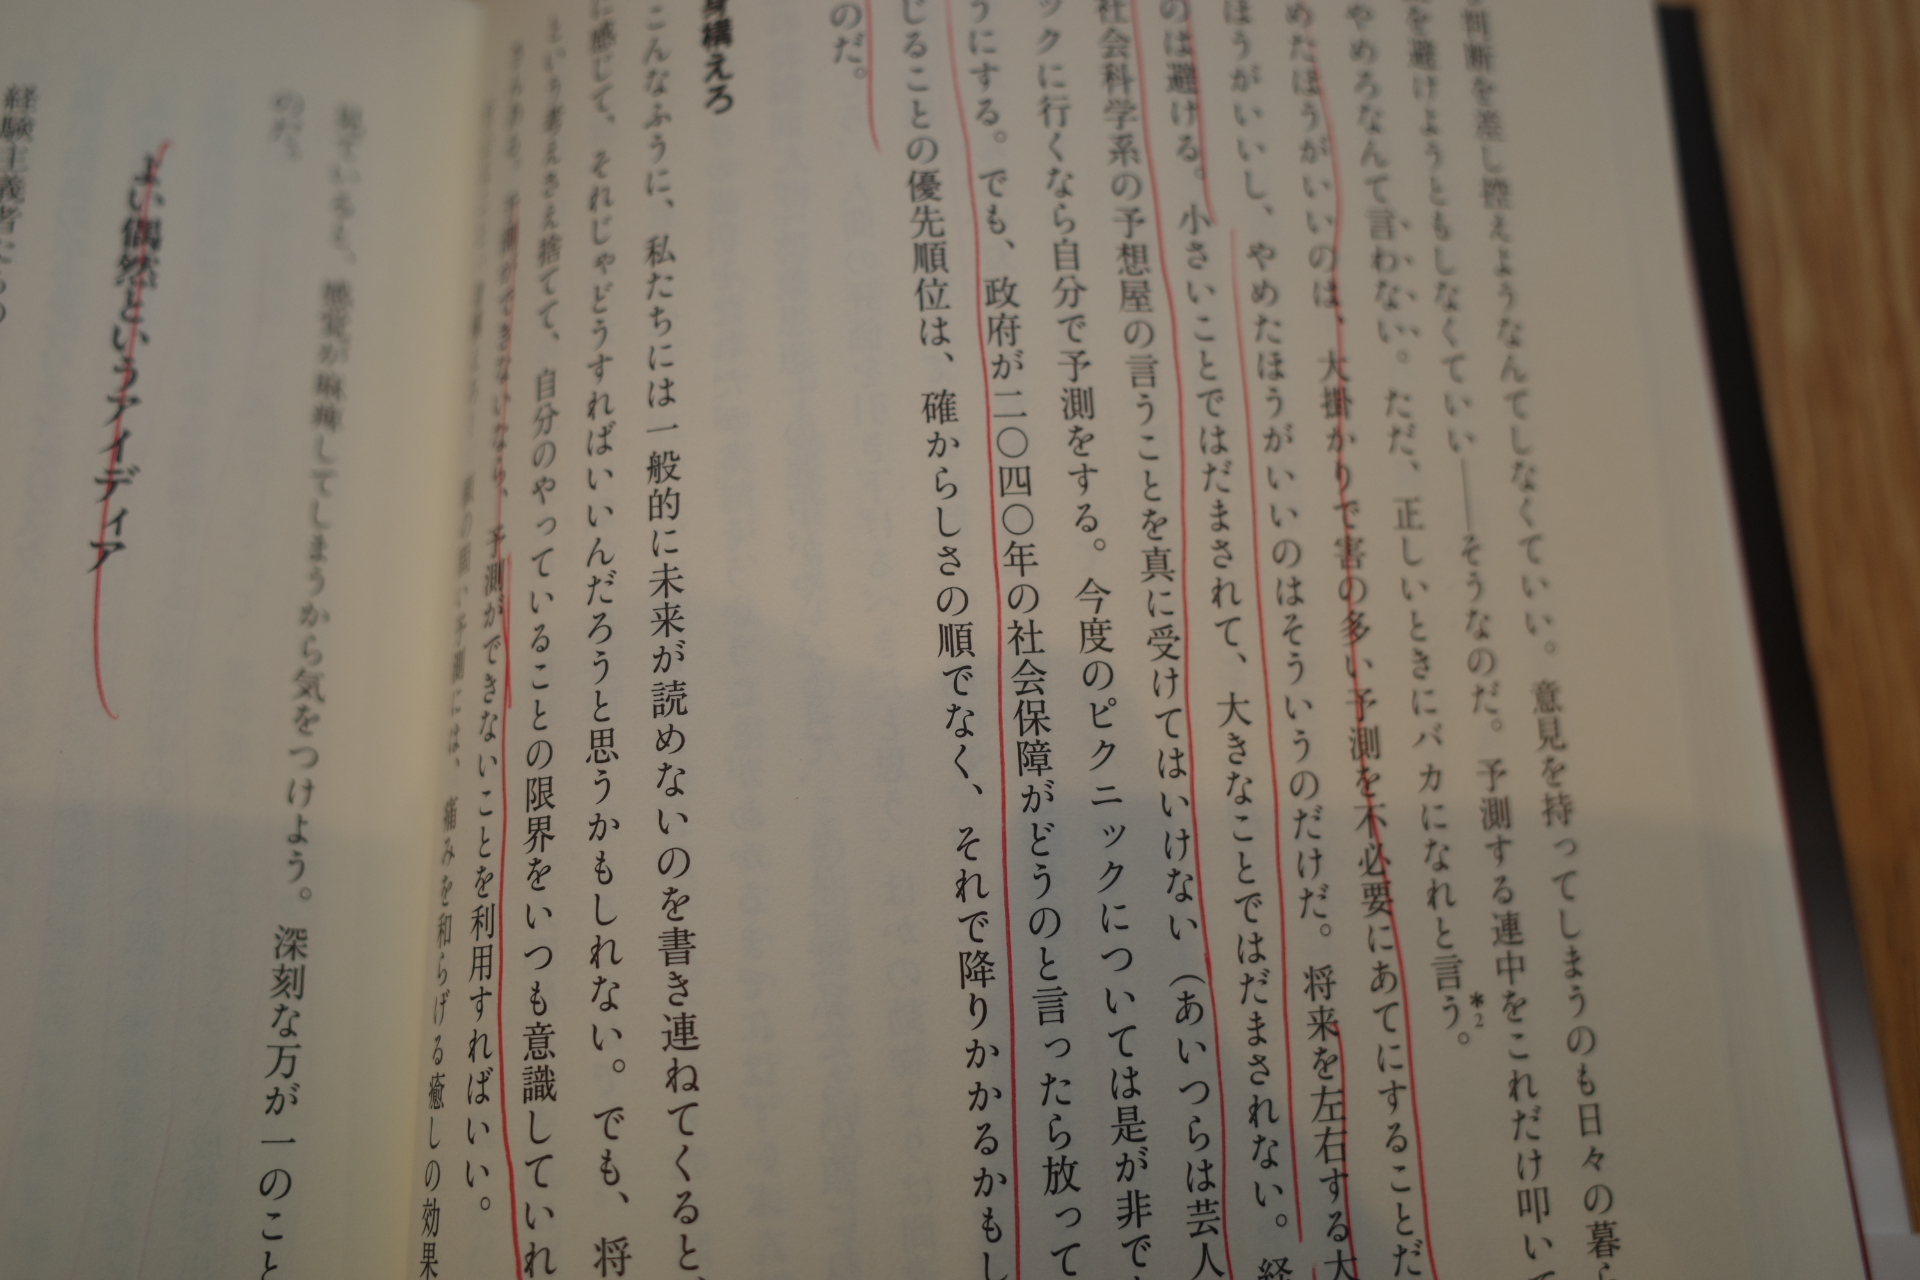 判断を差し控えようなんてしなくていい。意見を持ってしまうのも日々の暮ら
を避けようともしなくていい――そうなのだ。予測する連中をこれだけ叩いて
やめろなんて言わない。ただ、正しいときにバカになれと言う。*2
めたほうがいいのは、大掛かりで害の多い予測を不必要にあてにすることだ
ほうがいいし、やめたほうがいいのはそういうのだけだ。将来を左右する大
のは避ける。小さいことではだまされて、大きなことではだまされない。経
社会科学系の予想屋の言うことを真に受けてはいけない（あいつらは芸人
ックに行くなら自分で予測をする。今度のピクニックについては是が非で
うにする。でも、政府が二〇四〇年の社会保障がどうのと言ったら放って
じることの優先順位は、確からしさの順でなく、それで降りかかるかもし
のだ。
身構えろ
こんなふうに、私たちには一般的に未来が読めないのを書き連ねてくると、
に感じて、それじゃどうすればいいんだろうと思うかもしれない。でも、将
という考えさえ捨てて、自分のやっていることの限界をいつも意識していれ
予測ができないなら、予測ができないことを利用すればいい。
予測には、痛みを和らげる癒しの効果
感覚が麻痺してしまうから気をつけよう。深刻な万が一のこと
のだ。
よい偶然というアイディア
経験主義者たちの